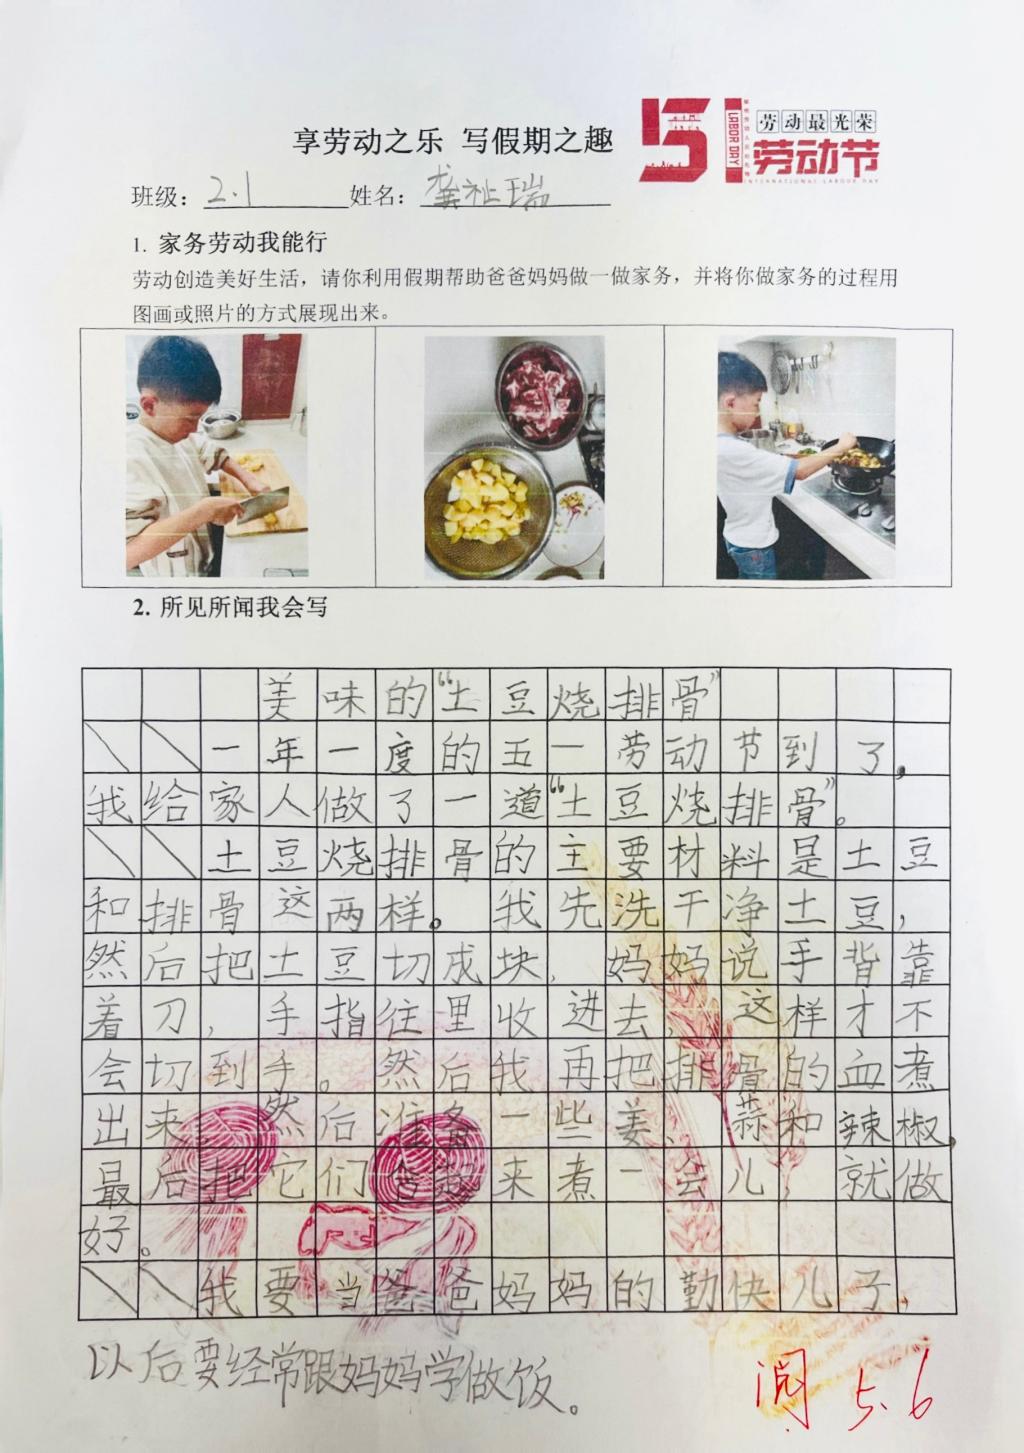 享劳动之乐 写假期之趣
51
LABOR DAY
劳动最光荣
劳动节
INTERNATIONAL LABOUR DAY
班级：2.1 姓名：龚祉瑞
1. 家务劳动我能行
劳动创造美好生活，请你利用假期帮助爸爸妈妈做一做家务，并将你做家务的过程用
图画或照片的方式展现出来。
2. 所见所闻我会写
美味的“土豆烧排骨”
一年一度的五一劳动节到了，
我给家人做了一道“土豆烧排骨”。
土豆烧排骨的主要材料是土豆
和排骨这两样。我先洗干净土豆，
然后把土豆切成块，妈妈说手背靠
着刀，手指往里收进去，这样才不
会切到手。然后我再把排骨的血煮
出来，然后准备一些姜、蒜和辣椒，
最后把它们合起来煮一会儿，就做
好。
我要当爸爸妈妈的勤快儿子，
以后要经常跟妈妈学做饭。
阅 5.6